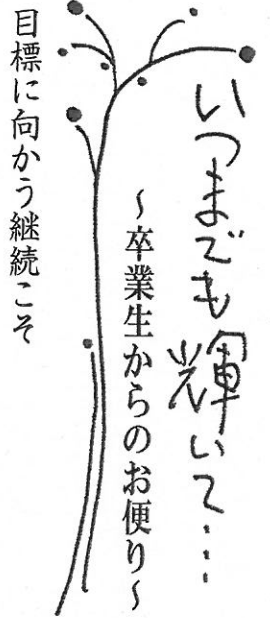 いつまでも輝いて…
～卒業生からのお便り～
目標に向かう継続こそ